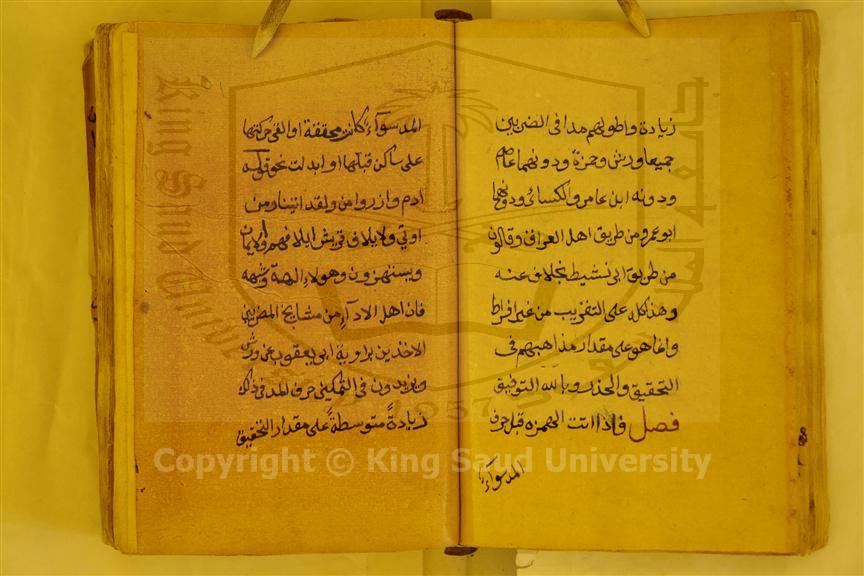 زيادة واطولهم مدا في الضربين
جميعا ورش وحمزة ودونهما عاصم
ودونه ابن عامر والكسائ ودونهما
ابو عمرو من طريق اهل العراق وقالون
من طريق ابي نشيط بخلاف عنه
وهذا كله على التقريب من غير افراط
وانما هو على مقدار مذاهبهم في
التحقيق والحدر وبالله التوفيق
فصل فاذا اتت الهمزه قبل حرف
المد سوآء
المد سوآء كانت محققة او القي حركتها
على ساكن قبلها او ابدلت نحو قوله
ادم وازر وامن ولقد اتينا ومن
اوتي ولايلاف قريش ايلافهم والايمان
ويستهزون وهولاء الهة وشبهه
فان اهل الادآء من مشايخ المصريين
الاخذين برواية ابي يعقوب عن ورش
ويزيدون في التمكين حرف المد في ذلك
زيادةً متوسطةً على مقدار التحقيق
King Saud University
جامعة الملك سعود
1957
Copyright © King Saud University